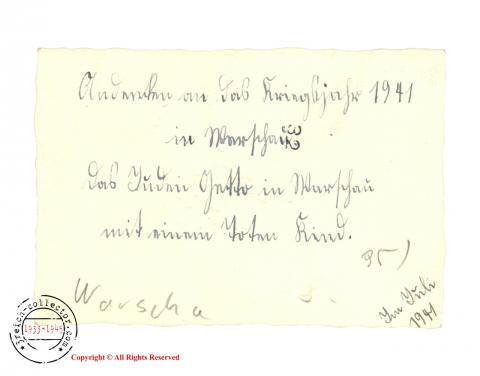 Andenken an das Kriegsjahr 1941
in Warschau
das Juden Getto in Warschau
mit einem toten Kind.
Warscha
Im Juli
1941
3reich-collector.com
1933-1945
Copyright © All Rights Reserved